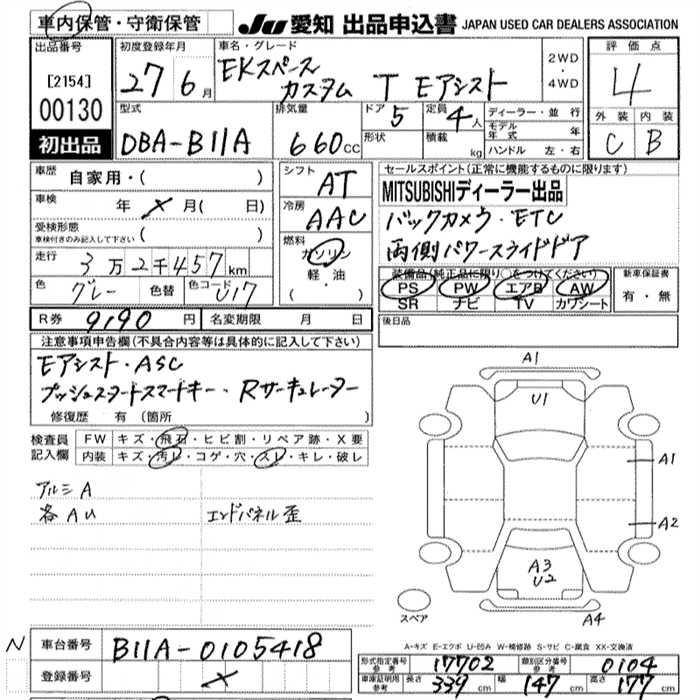 車内保管・守衛保管
JU 愛知 出品申込書 JAPAN USED CAR DEALERS ASSOCIATION
出品番号
[2154]
00130
初出品
初度登録年月
27 6月
車名・グレード
EKスペース
カスタム T Eアシスト
2WD
・
4WD
評価点
4
外装 内装
C B
型式
DBA-B11A
排気量
660CC
ドア 5
形状
定員 4人
積載 kg
ディーラー・並行
モデル年式 年
ハンドル 左・右
車歴
自家用・( )
車検
年 x 月( 日)
受検形態
車検付きのみ記入して下さい ( )
走行
3万2千457km
色 グレー 色替 色コード U17
シフト
AT
冷房
AAC
燃料
ガソリン
軽油
( ・ )
セールスポイント(正常に機能するものに限ります)
MITSUBISHIディーラー出品
バックカメラ・ETC
両側パワースライドドア
装備品(純正品に限り○をつけてください)
PS PW エアB AW
SR ナビ TV カワシート
新車保証書
有・無
R券 9190円 名変期限 月 日
後日品
注意事項申告欄(不具合内容等は具体的に記入して下さい)
Eアシスト・ASC
プッシュスタートスマートキー・Rサーキュレーター
修復歴 有(箇所 )
検査員
記入欄
FW キズ・飛石・ヒビ割・リペア跡・X要
内装 キズ・汚レ・コゲ・穴・スレ・キレ・破レ
アルミA
各AU エンドパネル歪
A1
U1
A1
A2
A3
U2
A4
スペア
A-キズ E-エクボ U-凹み W-補修跡 S-サビ C-腐食 XX-交換済
N
車台番号 B11A-0105418
登録番号 x
形式指定番号 参考 17702 類別区分番号 参考 0104
車庫証明用 参考 長さ 339cm 幅 147cm 高さ 177cm